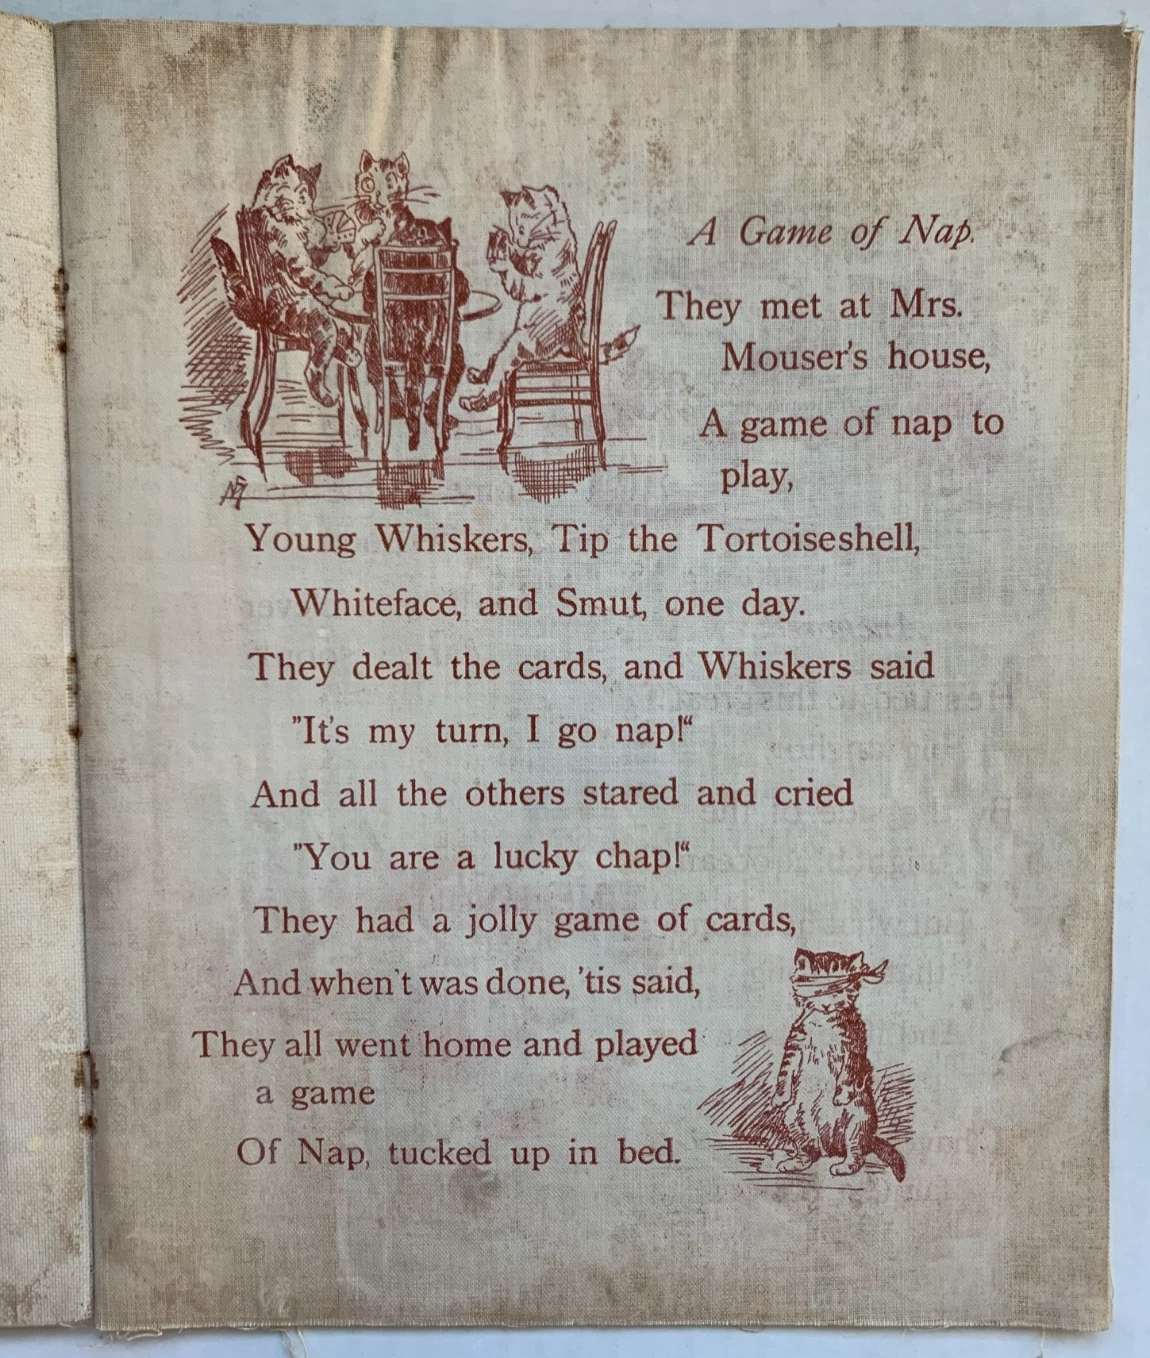 A Game of Nap.
They met at Mrs.
Mouser's house,
A game of nap to
play,
Young Whiskers, Tip the Tortoiseshell,
Whiteface, and Smut, one day.
They dealt the cards, and Whiskers said
"It's my turn, I go nap!“
And all the others stared and cried
"You are a lucky chap!“
They had a jolly game of cards,
And when't was done, 'tis said,
They all went home and played
a game
Of Nap, tucked up in bed.